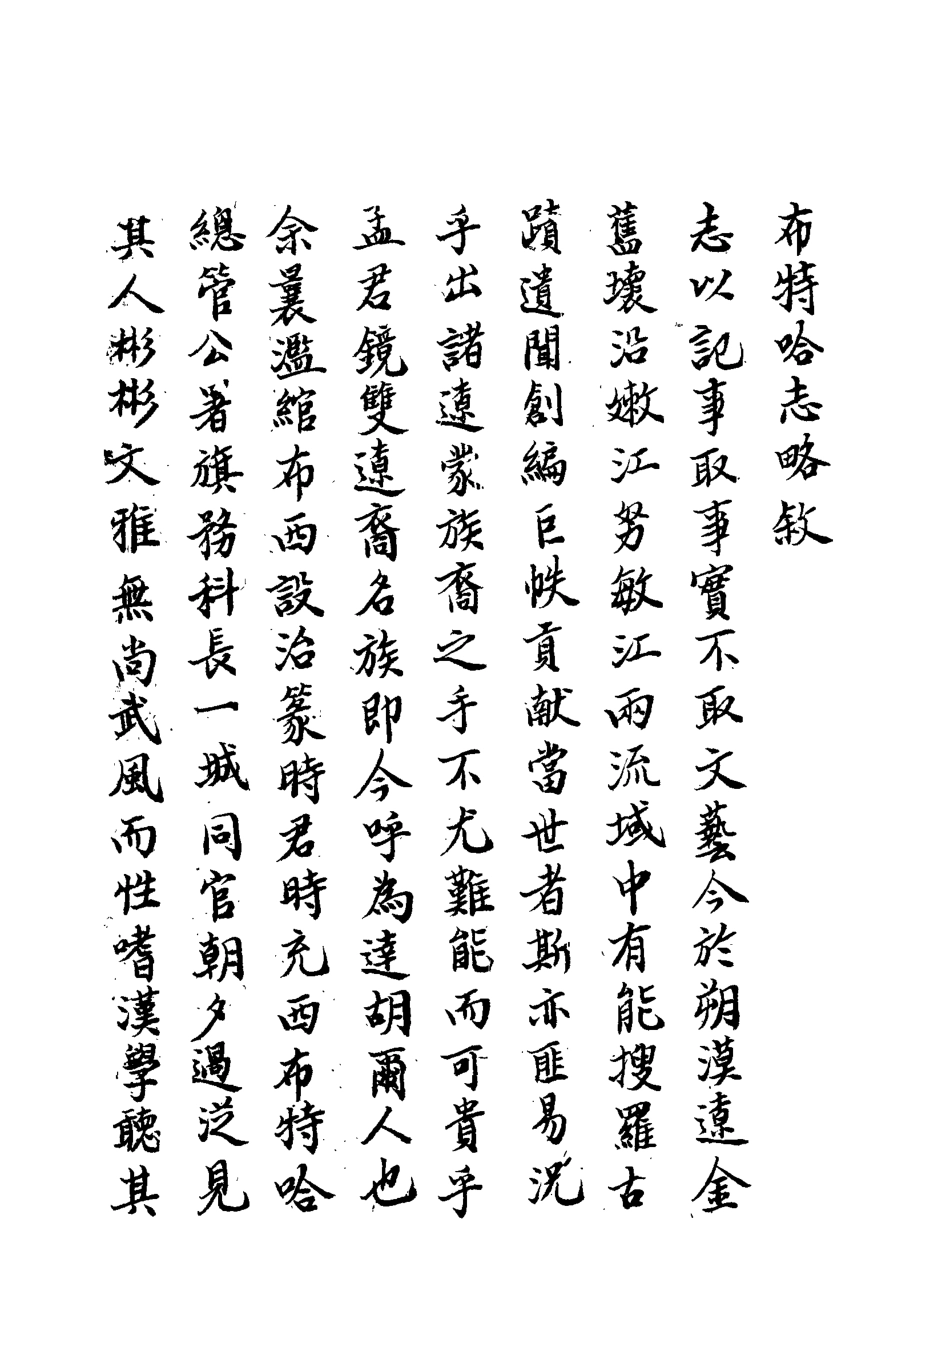 布特哈志略敘
志以記事取事實不取文藝今於朔漠遼金
舊壤沿嫩江努敏江兩流域中有能搜羅古
蹟遺聞創編巨帙貢献當世者斯亦匪易況
乎出諸遼蒙族裔之手不尤難能而可貴乎
孟君鏡雙遼裔名族即今呼為達胡爾人也
余曩濫綰布西設治篆時君時充西布特哈
總管公署旗務科長一城同官朝夕過從見
其人彬彬文雅無尚武風而性嗜漢學聽其